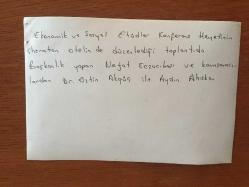 Ekonomik ve Sosyal Etüdler Konferans Heyetinin
Sheraton Otelin de düzenlediği toplantıda
Başkanlık yapan Nejat Eczacıbaşı ve konuşmacı-
lardan Dr. Öztin Akgüç ile Aydın